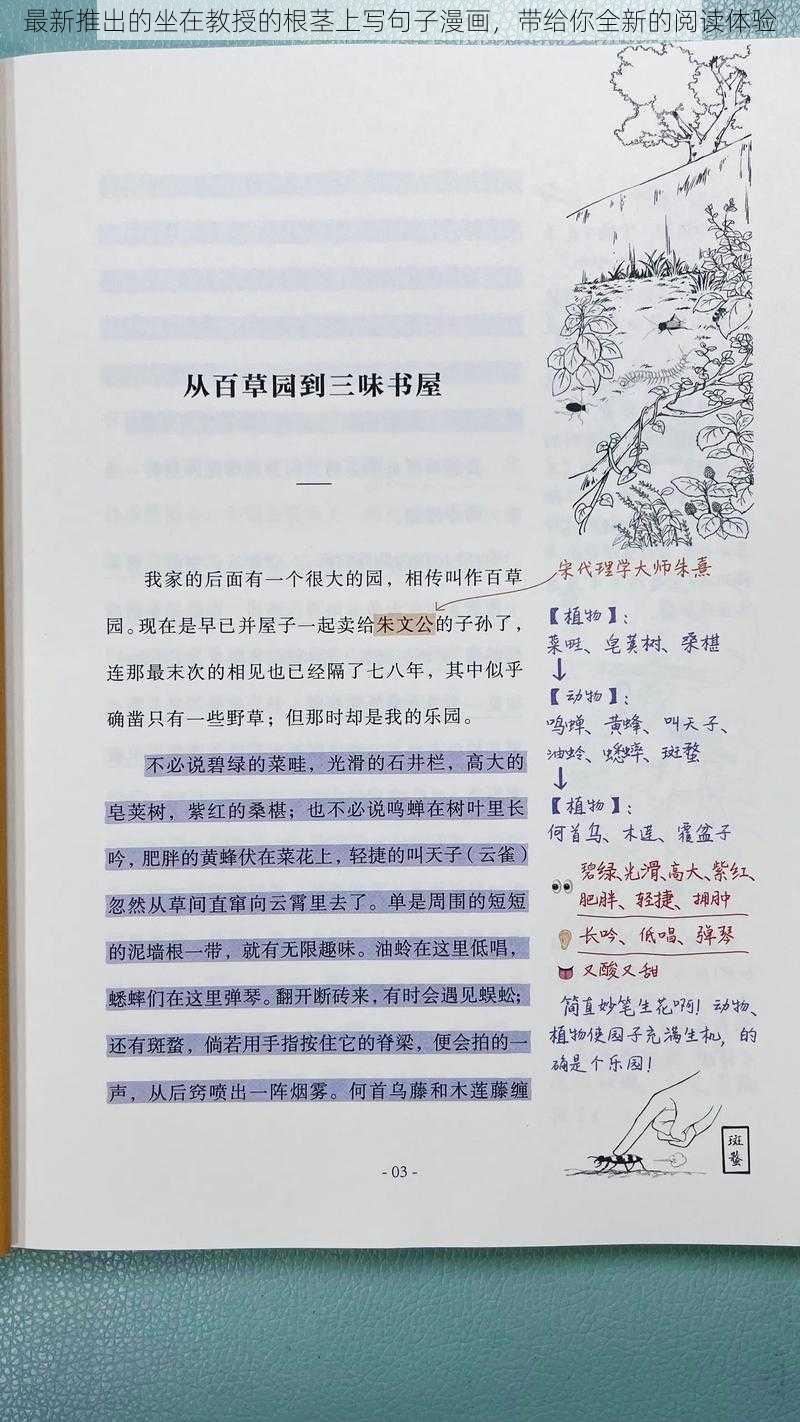 最新推出的坐在教授的根茎上写句子漫画，带给你全新的阅读体验
从百草园到三味书屋
我家的后面有一个很大的园，相传叫作百草
园。现在是早已并屋子一起卖给朱文公的子孙了，
连那最末次的相见也已经隔了七八年，其中似乎
确凿只有一些野草；但那时却是我的乐园。
不必说碧绿的菜畦，光滑的石井栏，高大的
皂荚树，紫红的桑椹；也不必说鸣蝉在树叶里长
吟，肥胖的黄蜂伏在菜花上，轻捷的叫天子（云雀）
忽然从草间直窜向云霄里去了。单是周围的短短
的泥墙根一带，就有无限趣味。油蛉在这里低唱，
蟋蟀们在这里弹琴。翻开断砖来，有时会遇见蜈蚣；
还有斑蝥，倘若用手指按住它的脊梁，便会拍的一
声，从后窍喷出一阵烟雾。何首乌藤和木莲藤缠
宋代理学大师朱熹
【植物】：
菜畦、皂荚树、桑椹
↓
【动物】：
鸣蝉、黄蜂、叫天子、
油蛉、蟋蟀、斑蝥
↓
【植物】：
何首乌、木莲、覆盆子
碧绿、光滑、高大、紫红、
肥胖、轻捷、拥肿
长吟、低唱、弹琴
又酸又甜
简直妙笔生花啊！动物、
植物使园子充满生机，的
确是个乐园！
斑蝥
- 03 -